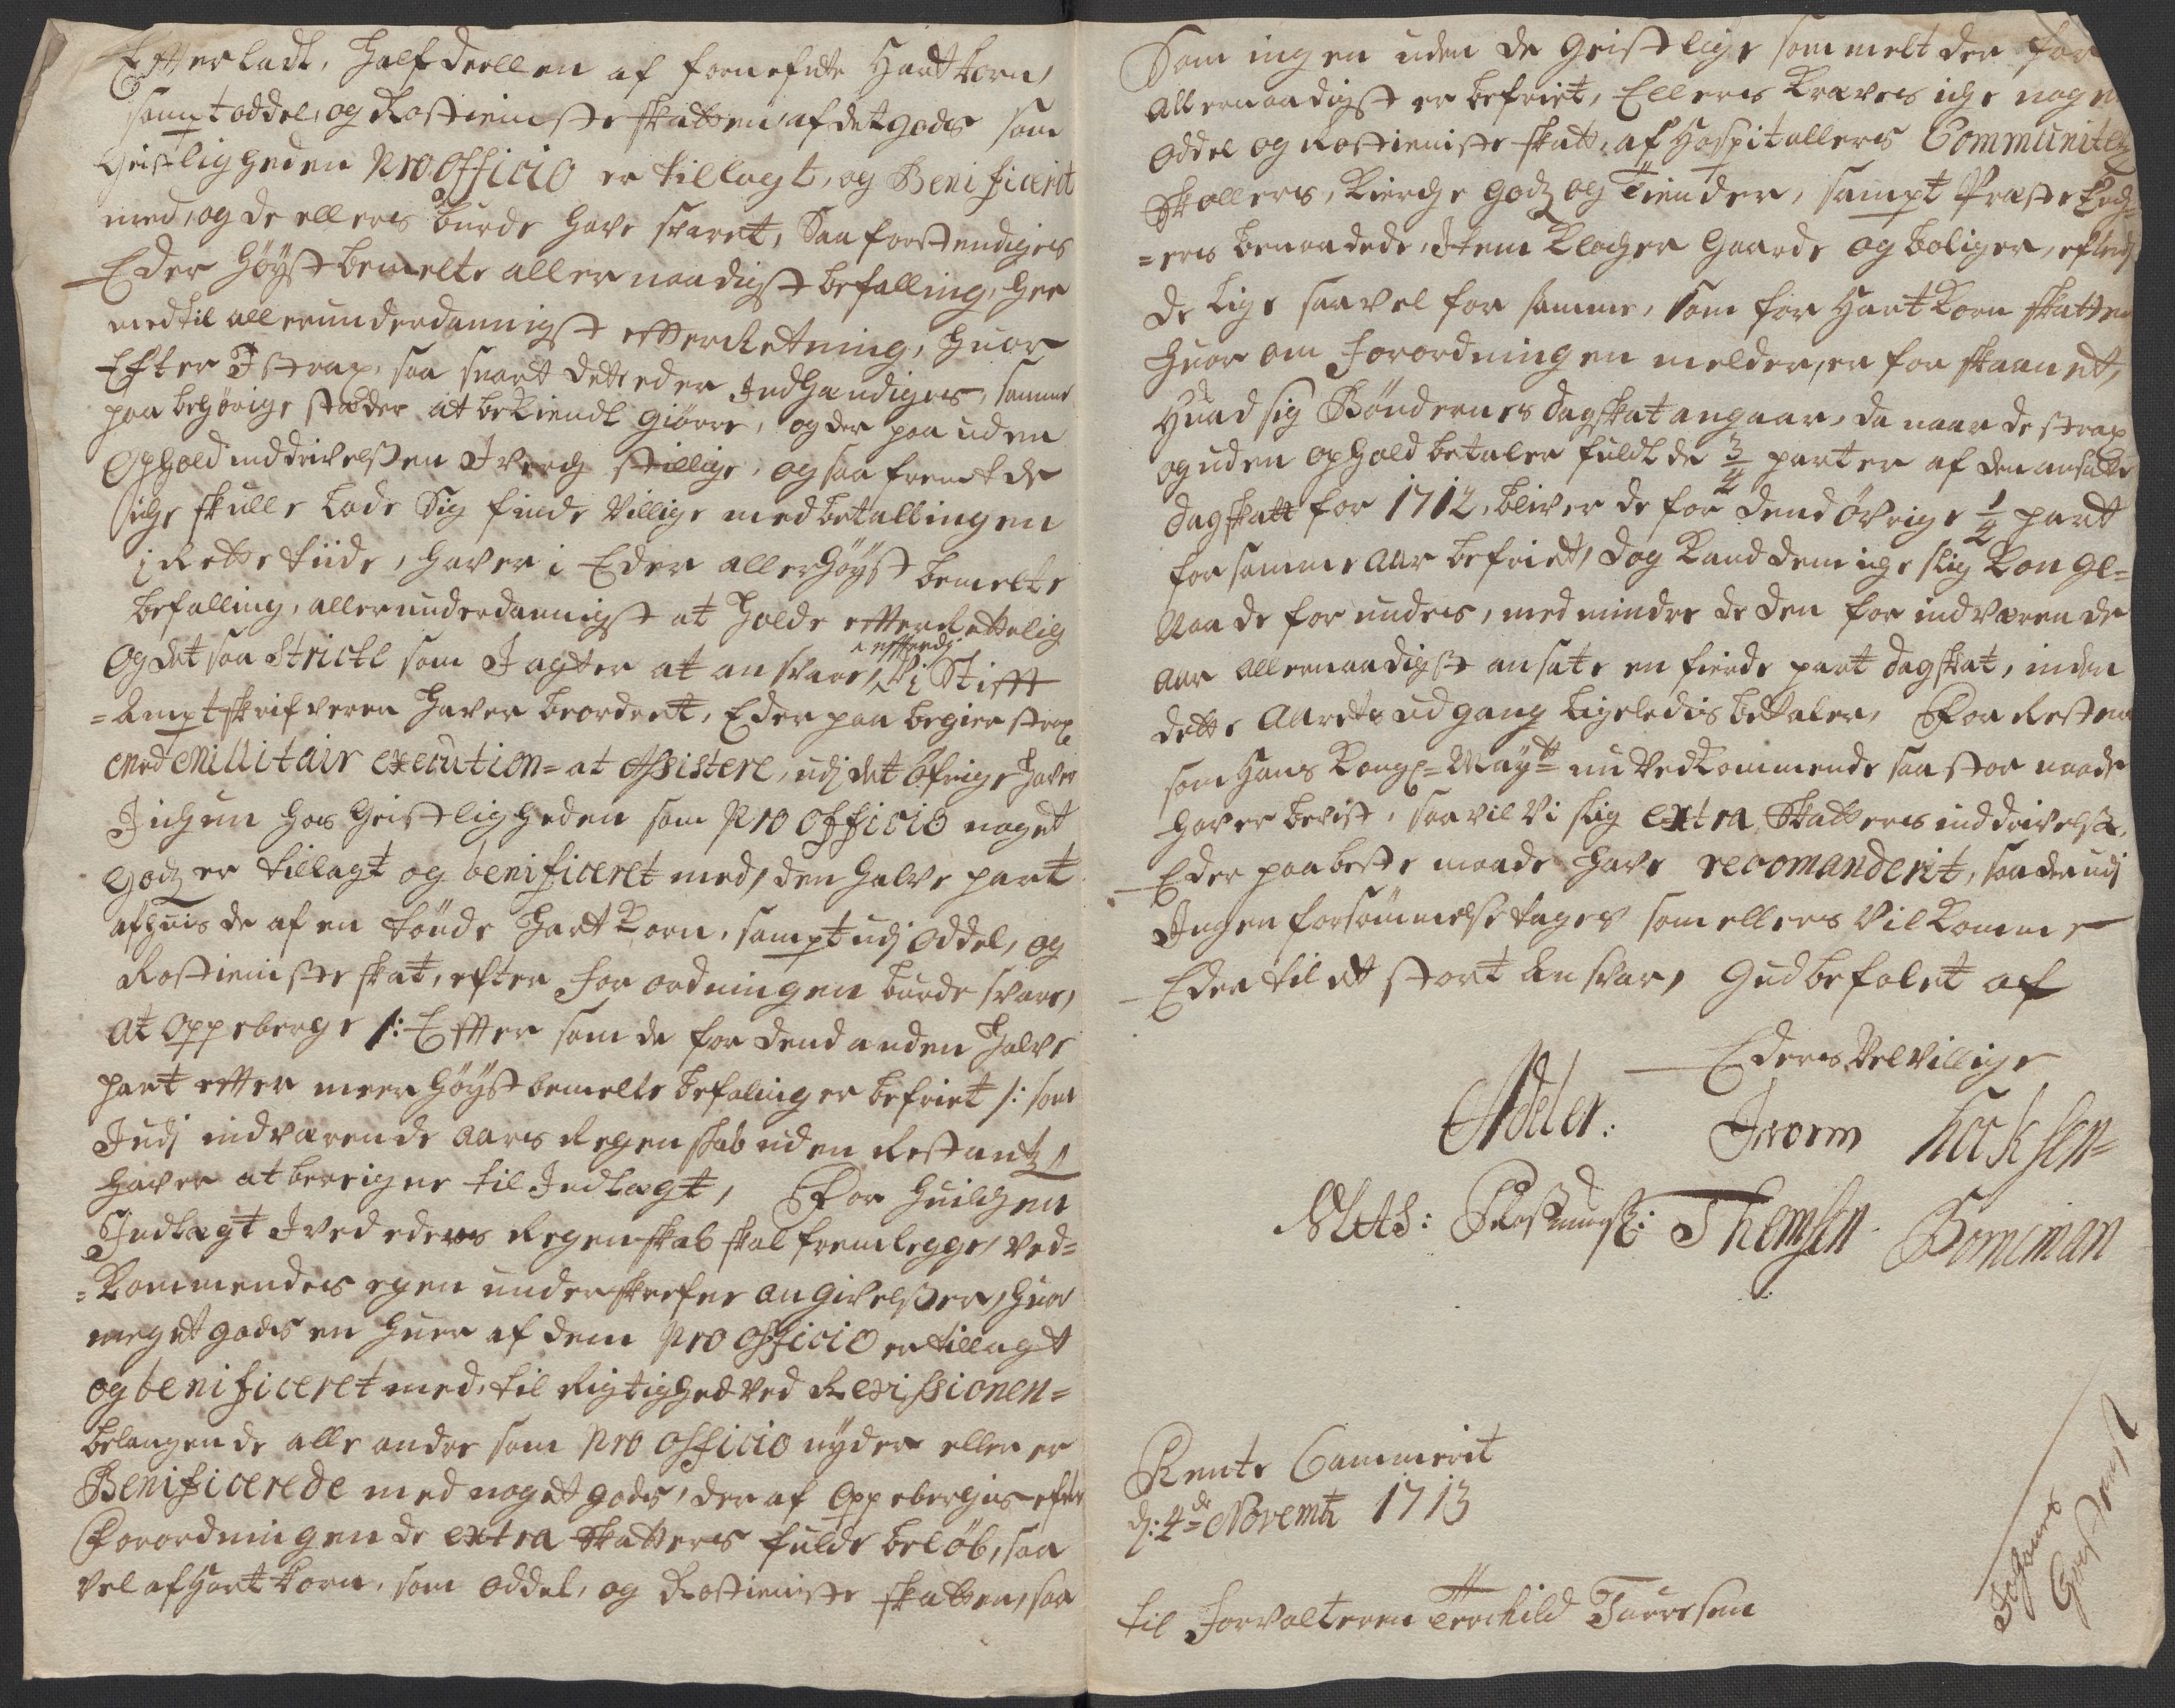 Efterladt, Halfdeellen af fornefnte Hartkorn,
sampt oddel, og Rostienste skatten, af det gods som
Geistligheden pro officio er tillagt, og Benificeret
med, og de ellers burde have svaret, Saa forstendiges
Eder Høyst bemelte allernaadigst befalling, her
med til allerunderdannigst efterRetning, huor
Efter I strax, saa snart dette eder Indhændiges, samme
paa behørige stæder at bekiendt giørre, og der paa uden
Ophold inddrivelsen I verch stillige, og saa fremt de
iche skulle lade Sig finde Villige med betallingen
i Rette tiide, haver i Eder allerhøyst bemelte
befalling, allerunderdannigst at holde efterrettelig
Og det saa Stricte som I agter at ansvare, efterdj Vi Stifft
=Amptskrifveren haver beordret, Eder paa begier strax
med Millitair execution= at Assistere, udj det Øfrige haver
I ichun hos Geistligheden som pro officio noget
godz er tillagt og benificeret med, den halve part
af huis de af en tønde Hartkorn, sampt udj Oddel, og
Rostieniste skat, efter Forordningen burde svare,
at Oppeberge /: Efter som de for dend anden halve
part efter meer høyst bemelte befaling er befriet /: som
I udj indværende Aars Regenskab uden Restantz
haver at beregne til Indtægt, For huilchen
Indtægt I ved eders Regenskab skal fremlegge, ved=
=Kommendes egen underskrefne angivelser, huor
meget gods en huer af dem pro officio er tillagt
og benificeret med, til Rigtighed ved Revissionen=
belangende alle andre som pro officio nyder eller er
Benificerede med noget gods, der af Oppeberges efter
Forordningen de extra Skatters fulde beløb, saa
vel af Hartkorn, som Oddel, og Rostieniste skatten, saa
Som ingen uden de Geistlige som melt der for
allernaadigst er befriet, Ellers Kræves iche nogen
Oddel og Rostieniste skatt, af Hospitallers Communitetz
Skollers, Kierche godz og Tiender, sampt Præste Ench=
=ers benaadede, Item Klocher Gaarde og boliger, efterdj
de lige saavel for samme, som for Hartkorn skatten
huor om Forordningen melder, er for skaanet,
Huad sig Bøndernes dagskat angaar, da naar de strax
og uden ophold betaler fuldt de 3/4 parter af den ansatte
dagskatt for 1712, bliver de for dend øvrige 1/4 part
for samme Aar befriet, dog Kand dem iche slig Kongl=
Naade forundes, med mindre de den for indværende
Aar allernaadigste ansate en fierde part dagskat, inden
dette Aarets udgang ligeledis bettaler, For Resten
som Hans Kongl= May.tt= nu Vedkommende saa stor naade
haver bevist, saa vil Vi slig extra Skatters inddrivelse,
Eder paa beste maade have recomanderit, saa der udj
Ingen forsømmelse tages som ellers Vil Komme
Eder til et stort Ansvar, Gud befalet af
Eders Velvillige
Adeler: Jworm Kocksen=
Math: Rostrupsg: Themsen Borneman
Rente Cammerit
d: 4de Novembr 1713
til Forvalteren Terchild Tuersen